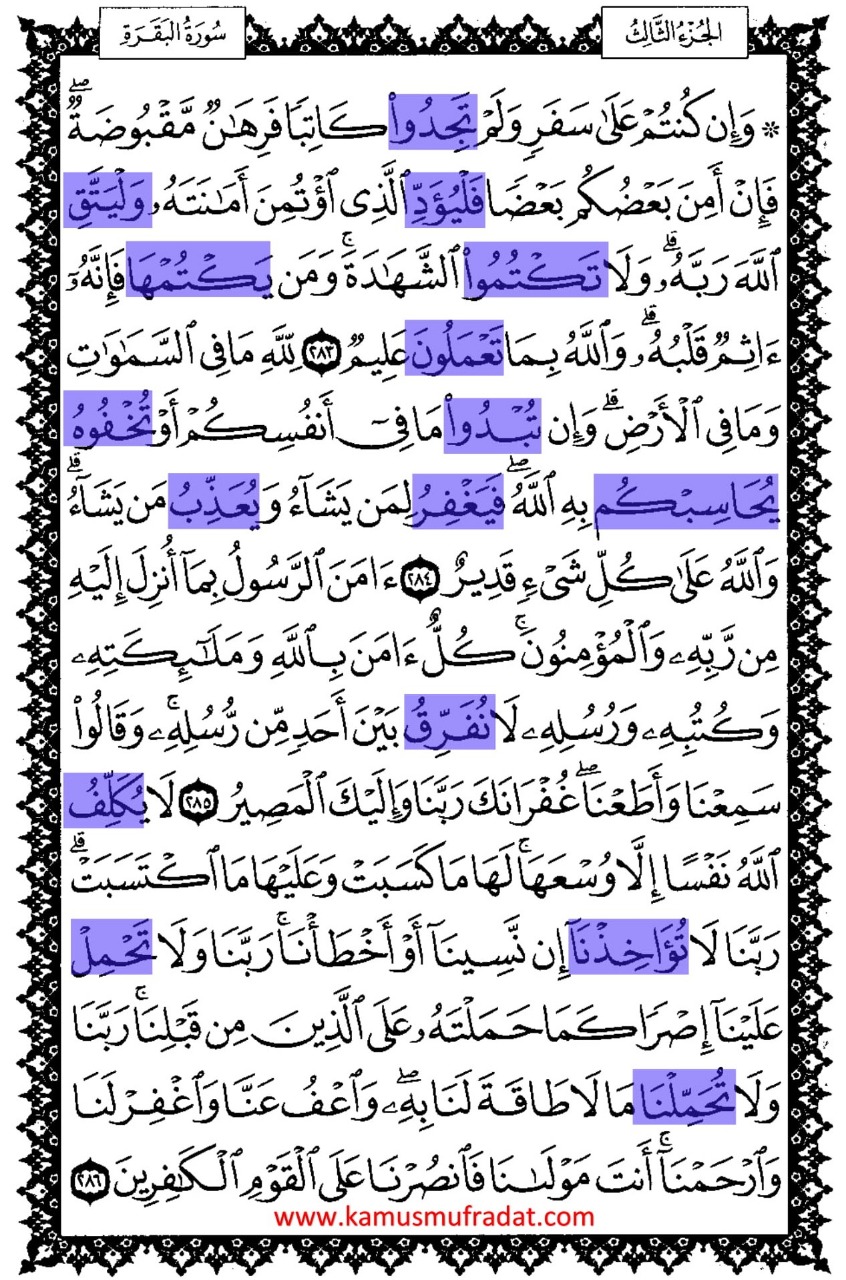 الجُزْءُ الثَّالِثُ
سُورَةُ البَقَرَةِ
۞ وَإِن كُنتُمْ عَلَىٰ سَفَرٍ وَلَمْ تَجِدُوا۟ كَاتِبًا فَرِهَـٰنٌ مَّقْبُوضَةٌ ۖ
فَإِنْ أَمِنَ بَعْضُكُم بَعْضًا فَلْيُؤَدِّ ٱلَّذِى ٱؤْتُمِنَ أَمَـٰنَتَهُۥ وَلْيَتَّقِ
ٱللَّهَ رَبَّهُۥ ۗ وَلَا تَكْتُمُوا۟ ٱلشَّهَـٰدَةَ ۚ وَمَن يَكْتُمْهَا فَإِنَّهُۥٓ
ءَاثِمٌ قَلْبُهُۥ ۗ وَٱللَّهُ بِمَا تَعْمَلُونَ عَلِيمٌ ٢٨٣ لِّلَّهِ مَا فِى ٱلسَّمَـٰوَٰتِ
وَمَا فِى ٱلْأَرْضِ ۗ وَإِن تُبْدُوا۟ مَا فِىٓ أَنفُسِكُمْ أَوْ تُخْفُوهُ
يُحَاسِبْكُم بِهِ ٱللَّهُ ۖ فَيَغْفِرُ لِمَن يَشَآءُ وَيُعَذِّبُ مَن يَشَآءُ ۗ
وَٱللَّهُ عَلَىٰ كُلِّ شَىْءٍ قَدِيرٌ ٢٨٤ ءَامَنَ ٱلرَّسُولُ بِمَآ أُنزِلَ إِلَيْهِ
مِن رَّبِّهِۦ وَٱلْمُؤْمِنُونَ ۚ كُلٌّ ءَامَنَ بِٱللَّهِ وَمَلَـٰٓئِكَتِهِۦ
وَكُتُبِهِۦ وَرُسُلِهِۦ لَا نُفَرِّقُ بَيْنَ أَحَدٍ مِّن رُّسُلِهِۦ ۚ وَقَالُوا۟
سَمِعْنَا وَأَطَعْنَا ۖ غُفْرَانَكَ رَبَّنَا وَإِلَيْكَ ٱلْمَصِيرُ ٢٨٥ لَا يُكَلِّفُ
ٱللَّهُ نَفْسًا إِلَّا وُسْعَهَا ۚ لَهَا مَا كَسَبَتْ وَعَلَيْهَا مَا ٱكْتَسَبَتْ ۗ
رَبَّنَا لَا تُؤَاخِذْنَآ إِن نَّسِينَآ أَوْ أَخْطَأْنَا ۚ رَبَّنَا وَلَا تَحْمِلْ
عَلَيْنَآ إِصْرًا كَمَا حَمَلْتَهُۥ عَلَى ٱلَّذِينَ مِن قَبْلِنَا ۚ رَبَّنَا
وَلَا تُحَمِّلْنَا مَا لَا طَاقَةَ لَنَا بِهِۦ ۖ وَٱعْفُ عَنَّا وَٱغْفِرْ لَنَا
وَٱرْحَمْنَآ ۚ أَنتَ مَوْلَىٰنَا فَٱنصُرْنَا عَلَى ٱلْقَوْمِ ٱلْكَـٰفِرِينَ ٢٨٦
www.kamusmufradat.com